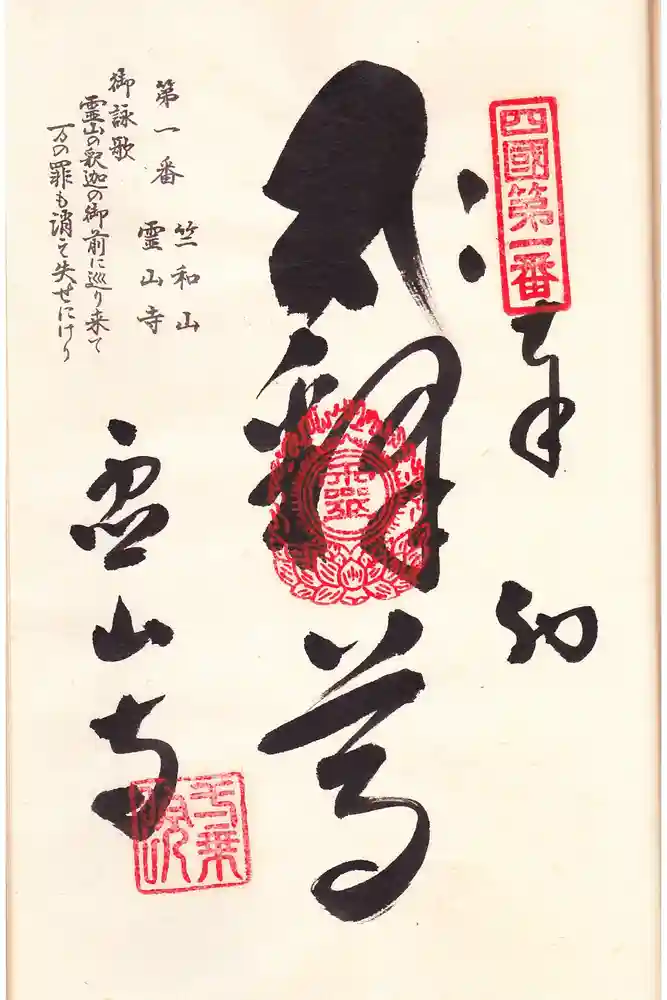 四國第一番
奉納
釋尊
第一番 竺和山
霊山寺
御詠歌
霊山の釈迦の御前に巡り来て
万の罪も消え失せにけり
霊山寺